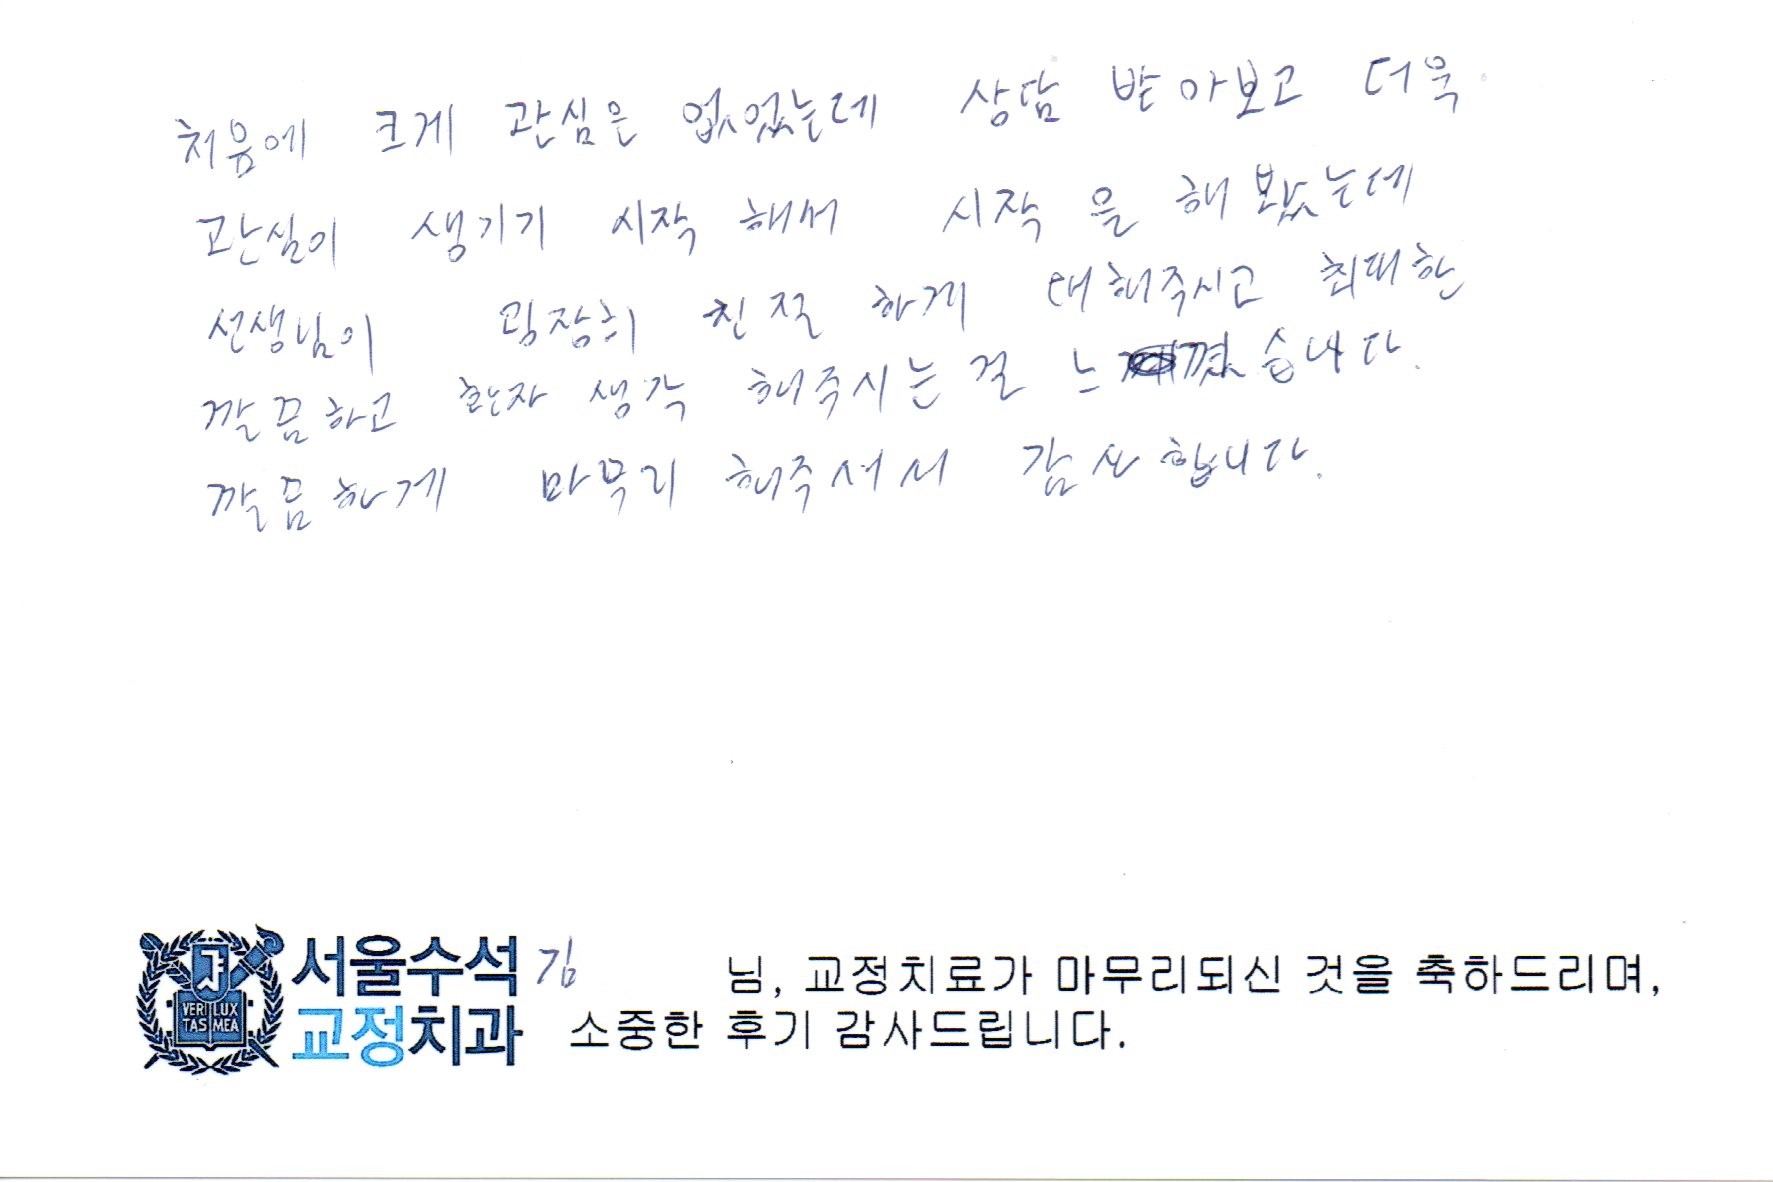 처음에 크게 관심은 없었는데 상담 받아보고 더욱
관심이 생기기 시작 해서 시작 을 해 봤는데
선생님이 굉장히 친절 하게 대해주시고 최대한
깔끔하고 환자 생각 해주시는 걸 느꼈습니다.
깔끔하게 마무리 해주셔서 감사합니다.
서울수석
교정치과
VERI LUX
TAS MEA
김 님, 교정치료가 마무리되신 것을 축하드리며,
소중한 후기 감사드립니다.